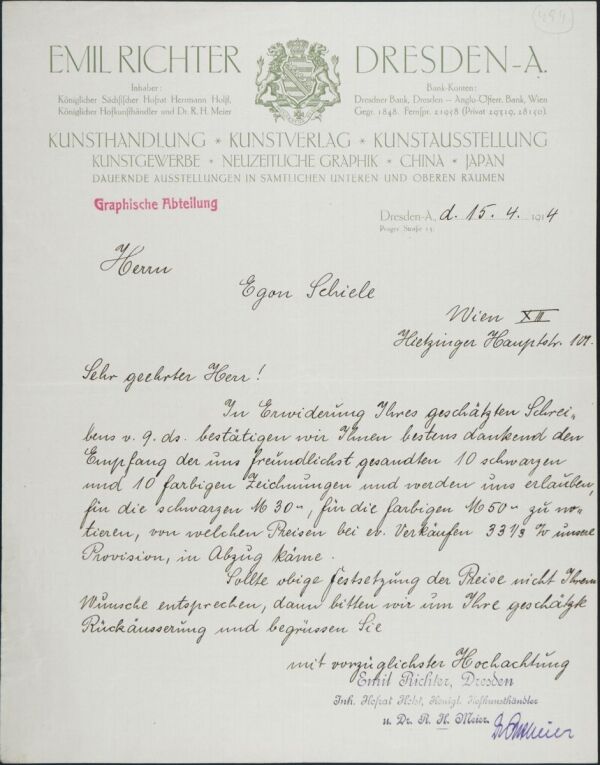 494
EMIL RICHTER DRESDEN-A.
Inhaber: Bank-Konten:
Königlicher Sächsischer Hofrat Herrmann Holst, Dresdner Bank, Dresden – Anglo-Österr. Bank, Wien
Königlicher Hofkunsthändler und Dr. R. H. Meier Gegr. 1848. Fernspr. 21958 (Privat 29319, 28150).
KUNSTHANDLUNG * KUNSTVERLAG * KUNSTAUSSTELLUNG
KUNSTGEWERBE * NEUZEITLICHE GRAPHIK * CHINA * JAPAN
DAUERNDE AUSSTELLUNGEN IN SÄMTLICHEN UNTEREN UND OBEREN RÄUMEN
Graphische Abteilung
Dresden-A, d. 15. 4. 1914
Prager Straße 13.
Herrn
Egon Schiele
Wien XIII
Hietzinger Hauptstr. 101.
Sehr geehrter Herr!
In Erwiderung Ihres geschätzten Schrei-
bens v. 9. ds. bestätigen wir Ihnen bestens dankend den
Empfang der uns freundlichst gesandten 10 schwarzen
und 10 farbigen Zeichnungen und werden uns erlauben,
für die schwarzen M 30.-, für die farbigen M 50.- zu no-
tieren, von welchen Preisen bei ev. Verkäufen 33 1/3 % unsere
Provision, in Abzug käme.
Sollte obige Festsetzung der Preise nicht Ihrem
Wunsche entsprechen, dann bitten wir um Ihre geschätzte
Rückäusserung und begrüssen Sie
mit vorzüglichster Hochachtung
Emil Richter, Dresden
Inh. Hofrat Holst, Königl. Hofkunsthändler
u. Dr. R. H. Meier.
Dr. RHMeier